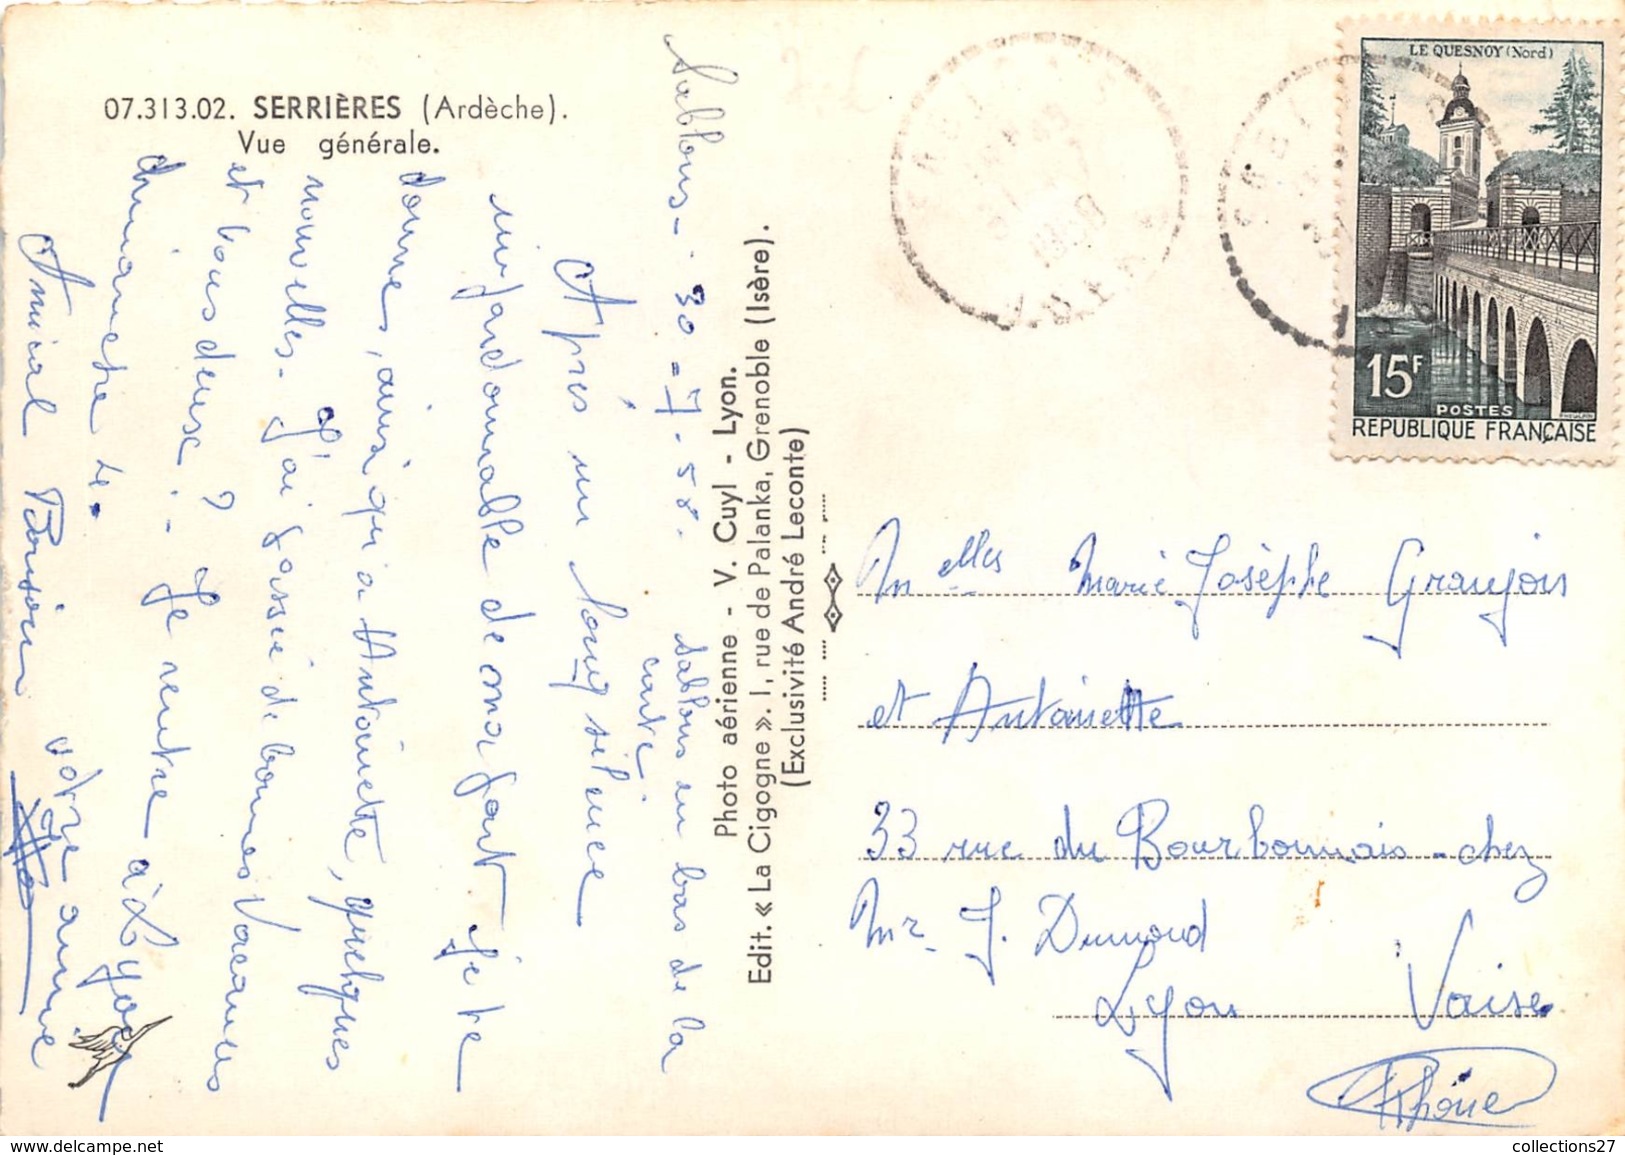 07.313.02. SERRIÈRES (Ardèche).
Vue générale.
Sablons - 30 - 7 - 58.
Sablons en bas de la
carte.
Après un long silence
impardonnable de ma part je te
donne, ainsi qu'a Antoinette, quelques
nouvelles - J'ai passé de bonnes Vacances
et vous deux ? - Je rentre à Lyon
dimanche 4.
Amical Bonsoir votre amie
Photo aérienne - V. Cuyl - Lyon.
Edit. « La Cigogne ». 1, rue de Palanka, Grenoble (Isère).
(Exclusivité André Leconte)
LE QUESNOY (Nord)
15F
POSTES
REPUBLIQUE FRANÇAISE
SABLONS
Melles Marie Josèphe Granjois
et Antoinette
33 rue du Bourbonnais - chez
Mr. J. Dumond
Lyon Vaise
Rhône
collections27